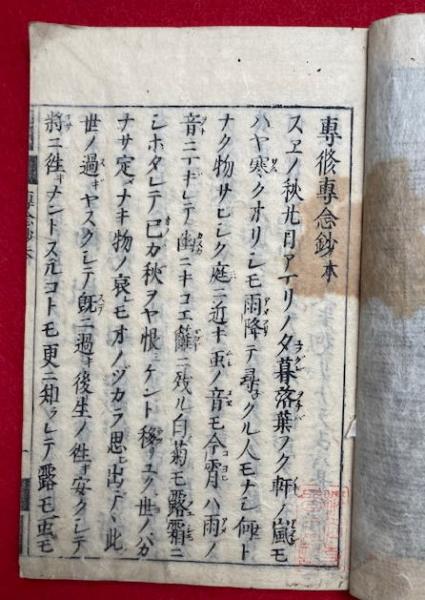 專修專念鈔本
スヱノ秋九月アマリノ夕暮落葉フク軒ノ嵐モ
ハヤ寒クオリシモ雨降テ尋クル人モナシ何ト
ナク物サビシク庭ニ近キ虫ノ音モ今宵ハ雨ノ
音ニマギレテ幽ニキコエ籬ニ残ル白菊モ露霜ニ
シホタレテ己カ秋ヲヤ恨ミケント移リユク世ノハカ
ナサ定メナキ物ノ哀モオノヅカラ思ヒ出デヽ此
世ノ過ギヤスクシテ既ニ過ギ後生ノ徃キ安クシテ
將ニ徃キナントスルコトモ更ニ知ラレテ露モ
專念鈔本